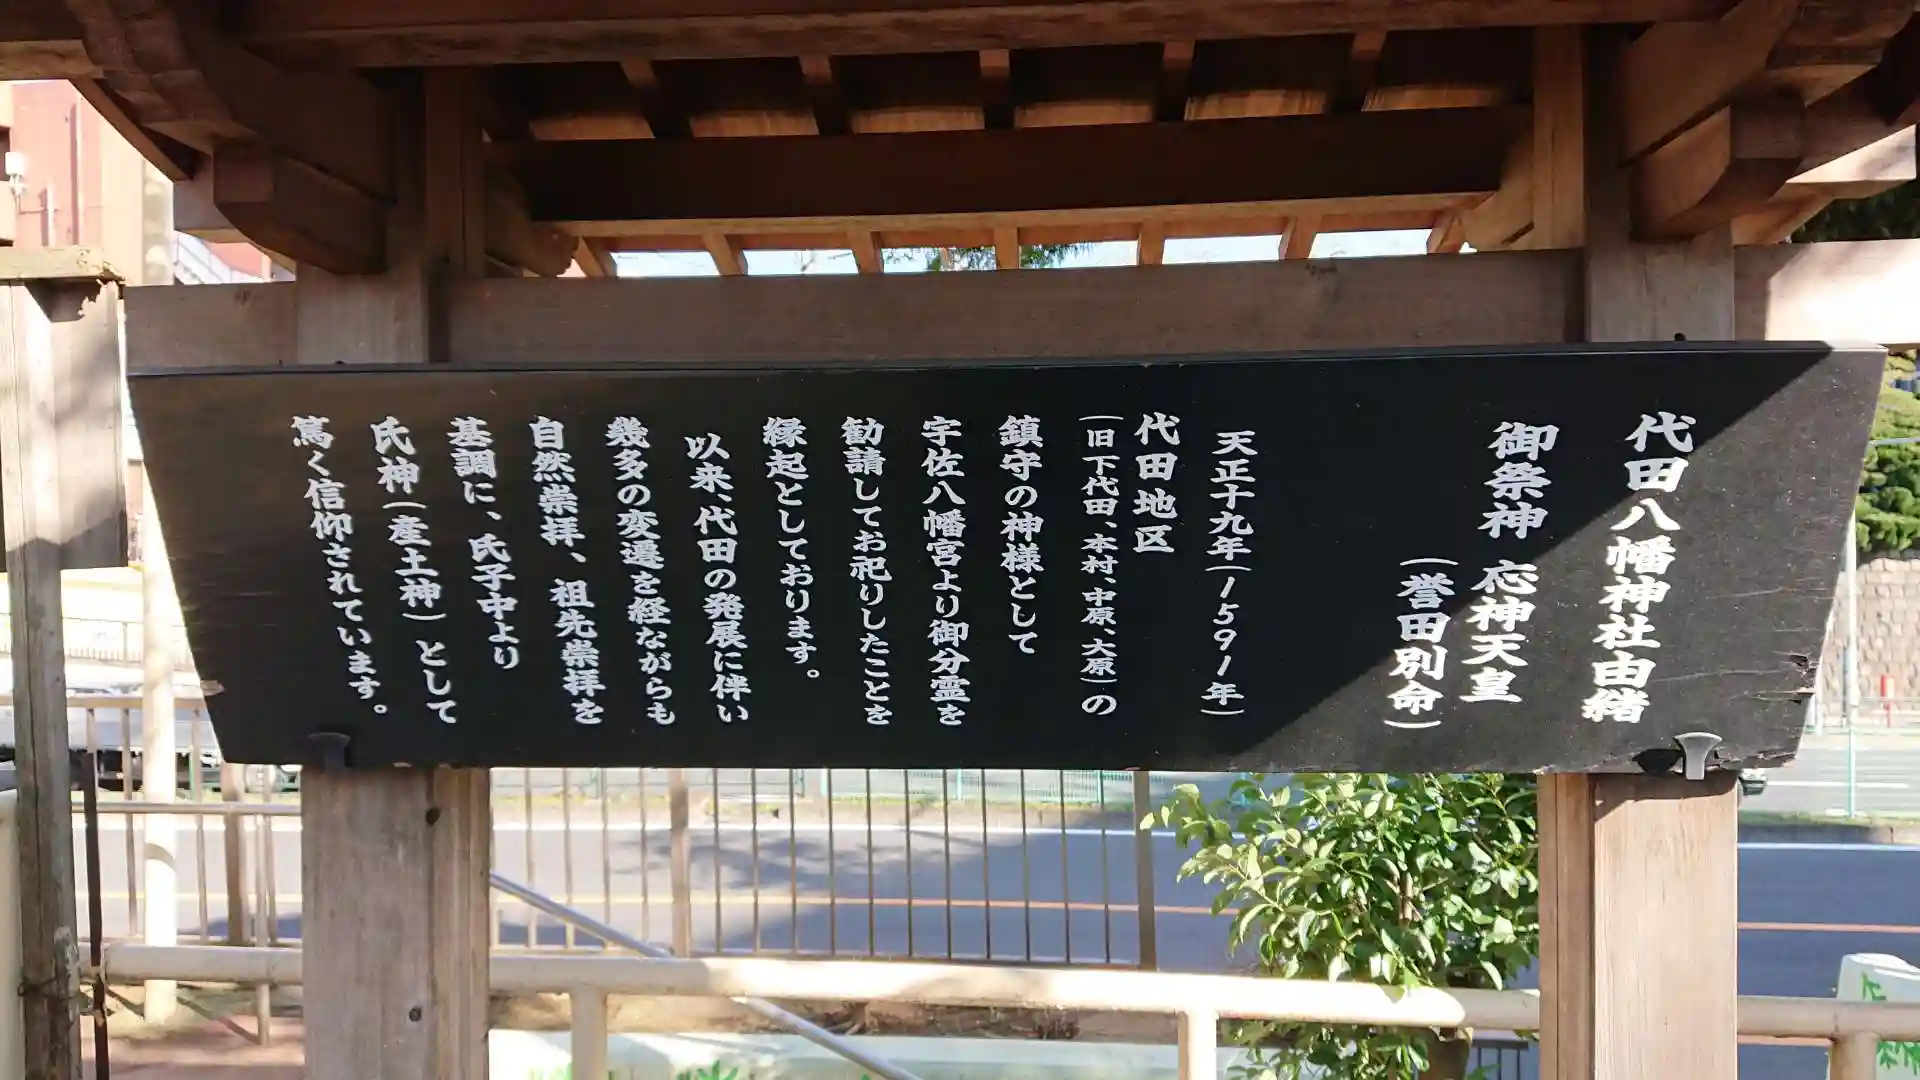 代田八幡神社由緒
御祭神 応神天皇
(誉田別命)
天正十九年(1591年)
代田地区
(旧下代田、本村、中原、大原)の
鎮守の神様として
宇佐八幡宮より御分霊を
勧請してお祀りしたことを
縁起としております。
以来、代田の発展に伴い
幾多の変遷を経ながらも
自然崇拝、祖先崇拝を
基調に、氏子中より
氏神(産土神)として
篤く信仰されています。